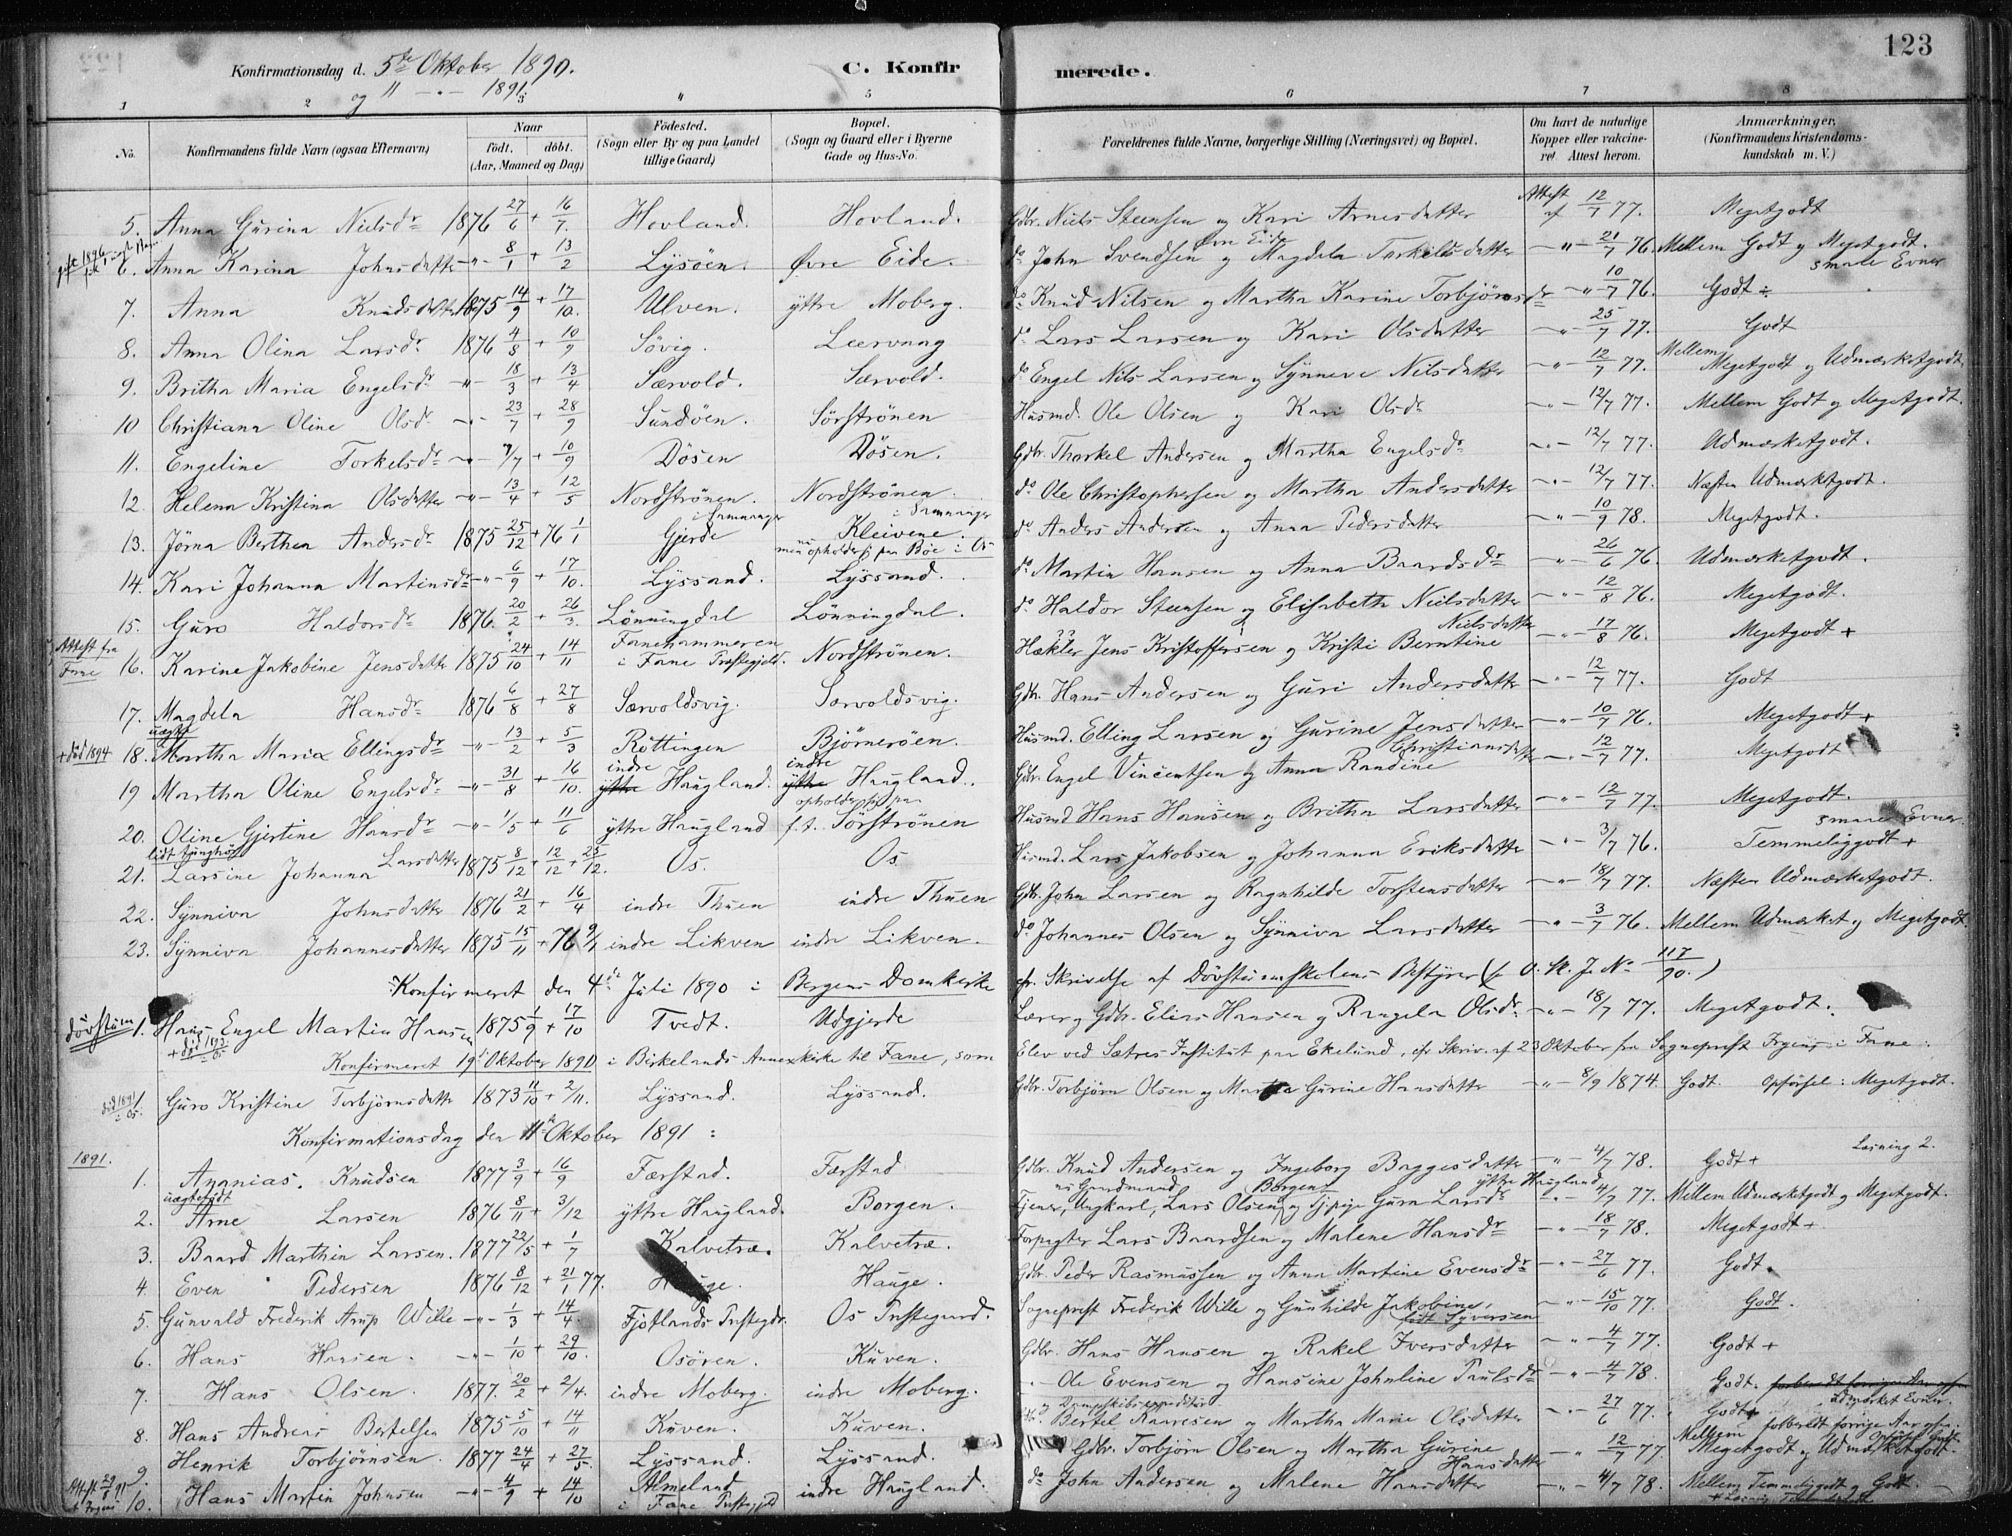 123
Konfirmationsdag d. 5te Oktober 1890. C. Konfirmerede.
og 11 -"- 1891.
1 2 3 " 5 6 7 8
No. Konfirmandens fulde Navn (ogsaa Efternavn) Naar födt. döbt. (Aar, Maaned og Dag) Födested. (Sogn eller By og paa Landet tillige Gaard) Bopæl. (Sogn og Gaard eller i Byerne Gade og Hus-No. Forældrenes fulde Navne, borgerlige Stilling (Næringsvei) og Bopæl. Om havt de naturlige Kopper eller vakcineret Attest herom. Anmærkninger. (Konfirmandens Kristendomskundskab m. V.)
5. Anna Gurina Nielsdr 1876 27/6 + 16/7. Hovland. Hovland. Gdbr. Niels Steensen og Kari Arnesdatter Attest af 12/7 77. Megetgodt
6. Anna Karina Johnsdatter -"- 8/1 + 13/2 Lysöen. Övre Eide. do John Svendsen og Magdela Torkildsdatter -"- 21/7 76. Mellem Godt og Megetgodt. smaae Evner
7. Anna Knudsdatter 1875 14/9 + 17/10. Ulven. yttre Moberg. do Knud Nilsen og Martha Karine Torbjörnsdr -"- 10/7 76. Godt
8. Anna Olina Larsdr 1876 4/8 + 10/9 Sövig. Leervaag do Lars Larsen og Kari Olsdatter -"- 25/7 77. Godt
9. Britha Maria Engelsdr -"- 18/3 + 13/4 Særvold. Særvold. do Engel Nils Larsen og Synneve Nilsdatter -"- 12/7 77. Mellem Megetgodt og Udmærketgodt
10 Christiana Oline Olsdr -"- 23/7 + 28/9 Sundöen. Sörströnen Husmd. Ole Olsen og Kari Olsdr -"- 12/7 77. Mellem Godt og Megetgodt.
11. Engeline Torkelsdr -"- 7/7 + 10/9 Dösen Dösen. Gdbr. Thorkel Andersen og Martha Engelsdr -"- 12/7 77. Udmærketgodt.
12. Helena Kristina Olsdatter -"- 13/4 + 12/5 Nordströnen. Nordströnen. do Ole Christophersen og Martha Andersdatter -"- 12/7 77. Næsten Udmærktgodt.
13. Jörna Berthea Andersdr 1875 25/12 + 76 1/1 Gjerde i Samnanger Kleivene. i Samnanger men opholder sig paa Böe i Os do Anders Andersen og Anna Pedersdatter -"- 10/9 78. Megetgodt.
14. Kari Johanna Martinsdr -"- 6/9 + 17/10. Lyssand. Lyssand. do Martin Hansen og Anna Baardsdr -"- 26/6 76. Udmærketgodt.
15. Guro Haldorsdr 1876. 20/2 + 26/3. Lönningdal Lönningdal. do Haldor Steensen og Elisabeth Nielsdatter -"- 12/8 76. Megetgodt.
Attest fra Fane 16. Karine Jakobine Jensdatter 1875 24/10 + 14/11 Fanehammeren i Fane Præstegjeld. Nordströnen. Hækler Jens Kristoffersen og Kristi Berntine Nielsdatter -"- 17/8 76. Megetgodt +
17. Magdela Hansdr 1876 6/8 + 27/8 Særvoldsvig. Særvoldsvig. Gdbr. Hans Andersen og Guri Andersdatter -"- 12/7 77. Godt
+ död 1894 18. uægte Martha Maria Ellingsdr -"- 13/2 + 5/3 Röttingen Björneröen. Husmd. Elling Larsen og Gurine Jensdatter -"- 10/7 76. Megetgodt +
19 Martha Oline Engelsdr -"- 31/8 + 16/10. indre yttre Haugland. indre yttre Haugland. Gdbr. Engel Vincentsen og Anna Randine Christiansdatter -"- 12/7 77. Megetgodt
20. Oline Gjertine Hansdr -"- 1/5 + 11/6 yttre Haugland opholder sig paa f. t. Sörströnen Husmd Hans Hansen og Britha Larsdatter -"- 12/7 77. Megetgodt.
21. lidt tunghör Larsine Johanna Larsdatter 1875 8/12 + 12/12 + 25/12. Os. Os Husmd. Lars Jakobsen og Johanna Eriksdatter -"- 3/7 76. smaae Evner. Temmeliggodt +
22. Synniva Johnsdatter 1876 21/2 + 16/4 indre Thuen indre Thuen Gdbr. John Larsen og Ragnhilde Torstensdatter -"- 18/7 77. Næsten Udmærketgodt.
23. Synniva Johannesdatter 1875 15/11 + 76 9/1 indre Likven indre Likven. do Johannes Olsen og Synniva Larsdatter -"- 3/7 76. Mellem Udmærket og Megetgodt.
Konfirmeret den 4de Juli 1890 i Bergens Domkirke efr. Skrivelse af Dövstumskolens Bestyrer ( No 117/90.)
dövstum 1. Hans Engel Martin Hansen 1875 1/9 + 17/10 Tvedt. Udgjerde Lærer og Gdbr. Elias Hansen og Rangela Olsdr -"- 18/7 77. Megetgodt.
Konfirmeret 19de Oktober 1890 i Birkelands Annexkirke til Fane, som Elev ved Sætres Institut paa Ekelund, efr Skriv. af 23 Oktober fra Sogneprest i Fane.
1. Guro Kristine Torbjörnsdatter 1873 11/10 + 2/11. Lyssand. Lyssand. Gdbr. Torbjörn Olsen og Martha Gurine Hansdatter -"- 8/9 1874. Godt. Opförsel: Megetgodt.
Konfirmationsdag den 11te Oktober 1891:
1891.
1. Ananias. Knudsen 1877 3/9 + 16/9 Færstad. Færstad Gdbr. Knud Andersen og Ingeborg Baggesdatter -"- 4/7 78. Godt + Læsning 2.
2. uægtefödt Arne Larsen 1876 8/11 + 3/12 yttre Haugland. Borgen. Tjener, Ungkarl, Lars Olsen og Tj.pige Guro Larsdr yttre Haugland -"- 4/7 77. Mellem Udmærketgodt og Megetgodt.
3. Baard Marthin Larsen. 1877 22/5 + 1/7 Kalvetræ. Kalvetræ. Forpagter Lars Baardsen og Malene Hansdr -"- 18/7 78. Megetgodt +
4. Even Pedersen 1876 8/12 + 21/1 77. Hauge. Hauge. Gdbr. Peder Rasmussen og Anna Martine Evensdr -"- 27/6 77. Godt.
5. Gunvald Frederik Arup Wille -"- 1/3 + 14/4. Fjotlands Præstegd. Os Præstegaard. Sogneprest Frederik Wille og Gunhilde Jakobine, född Syversen -"- 15/10 77. Godt.
6. Hans Hansen. -"- 1/10 + 29/10. Osören. Kuven. Gdbr. Hans Hansen og Rakel Iversdatter -"- 4/7 77. Godt +
7. Hans Olsen. 1877. 20/2 + 2/4. indre Moberg. indre Moberg. -"- Ole Evensen og Hansine Johnline Paulsdr -"- 4/7 78. Godt.
8. Hans Andreas Bertelsen 1875 5/10 + 14/11 Kuven. Kuven. og Dampskibsexpeditör Bertel Hansen og Martha Marie Olsdatter -"- 27/6 77. Godt
9 Henrik Torbjörnsen. 1877 24/4 + 27/5. Lyssand. Lyssand. Gdbr. Torbjörn Olsen og Martha Gurine Hansdatter -"- 12/7 77. Mellem Megetgodt og Udmærketgodt.
10. Hans Martin Johnsen -"- 4/9 + 14/10 Almeland i Fane Præstegjeld indre Haugland. do John Andersen og Malene Hansdatter -"- 4/7 78. Mellem Temmeliggodt og Godt.